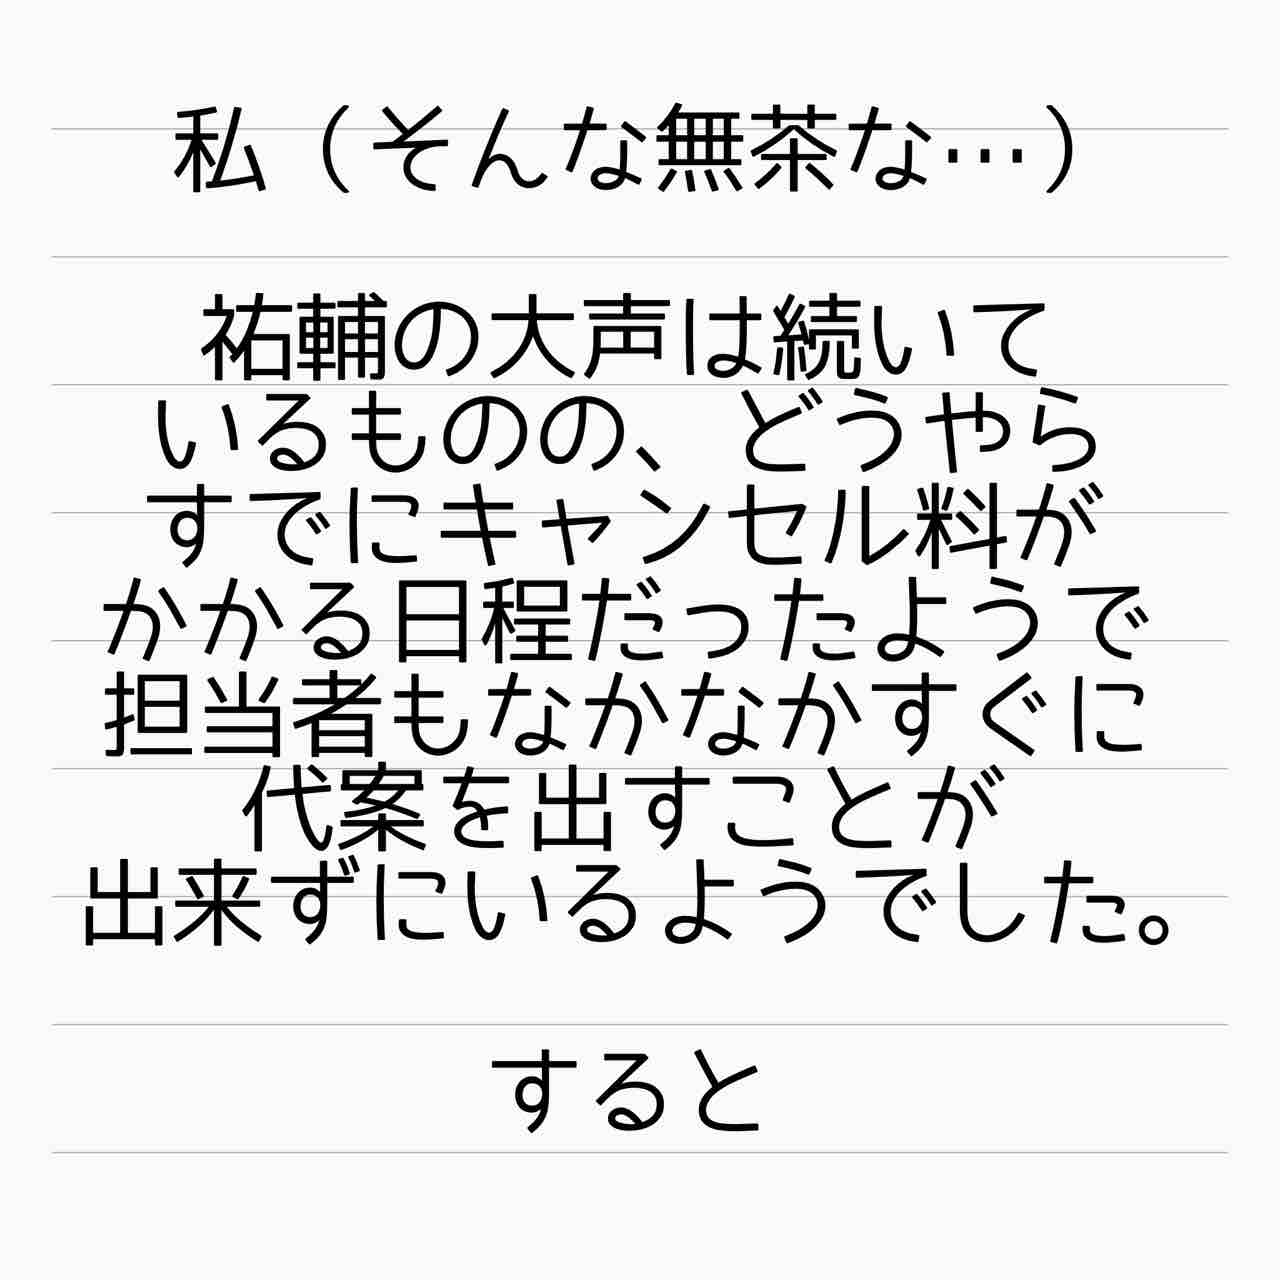 私（そんな無茶な…）
祐輔の大声は続いて
いるものの、どうやら
すでにキャンセル料が
かかる日程だったようで
担当者もなかなかすぐに
代案を出すことが
出来ずにいるようでした。
すると